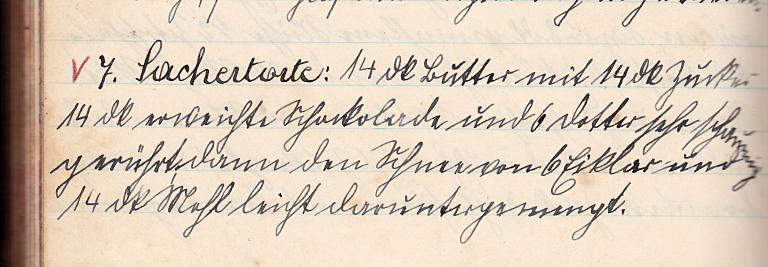 V 7. Sachertorte: 14 dk Butter mit 14 dk Zucker
14 dk erweichte Schockolade und 6 Dotter sehr schaumig
gerührt, dann den Schnee von 6 Eiklar und
14 dk Mehl leicht daruntergemengt.